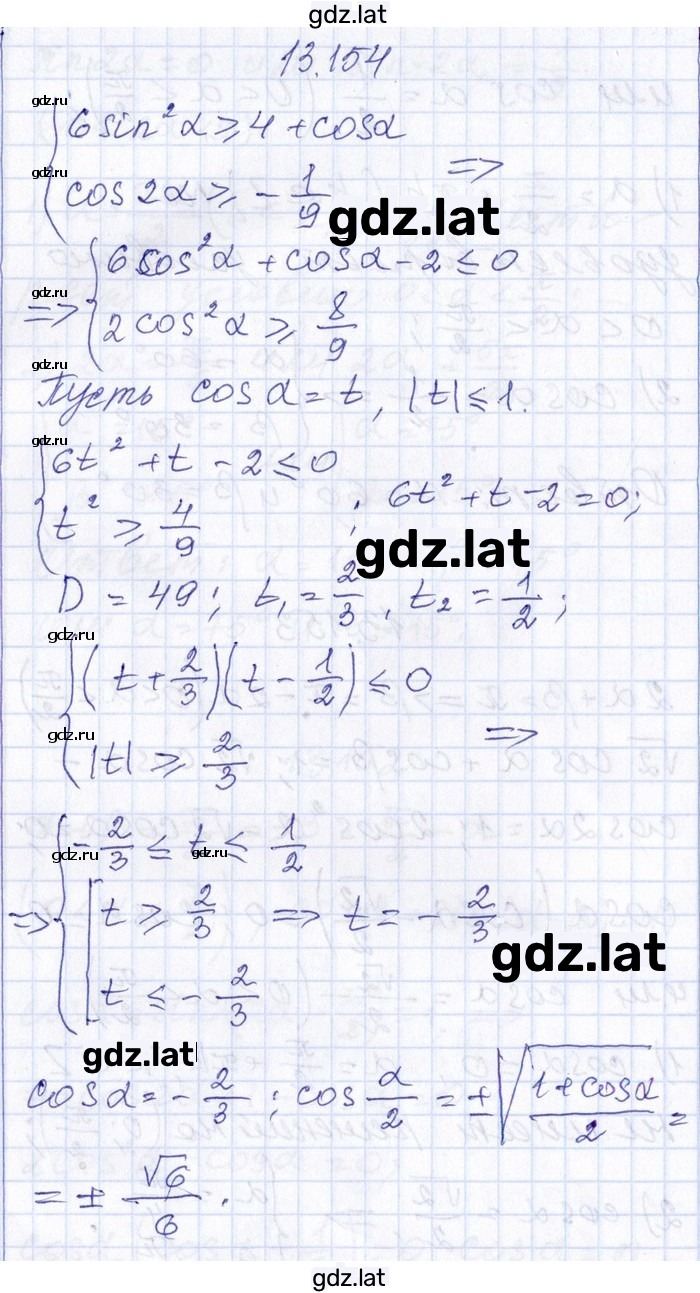 gdz.lat
13.154
gdz.ru
6 sin²α ⩾ 4 + cosα
gdz.ru
cos 2α ⩾ - 1/9 =>
gdz.lat
6 cos²α + cosα - 2 ⩽ 0
gdz.ru
=> 2 cos²α ⩾ 8/9
gdz.ru
Пусть cosα = t, |t| ⩽ 1.
gdz.ru
6t² + t - 2 ⩽ 0
gdz.ru
t² ⩾ 4/9 ; 6t² + t - 2 = 0;
gdz.lat
D = 49; t₁ = 2/3, t₂ = 1/2;
gdz.ru
(t + 2/3)(t - 1/2) ⩽ 0
gdz.ru
|t| ⩾ 2/3 =>
gdz.ru
- 2/3 ⩽ t ⩽ 1/2
gdz.ru
gdz.ru
=> t ⩾ 2/3 => t = - 2/3
gdz.lat
t ⩽ - 2/3
gdz.lat
cosα = - 2/3 ; cos α/2 = ± √((1 + cosα)/2) =
= ± √6/6 .
gdz.lat